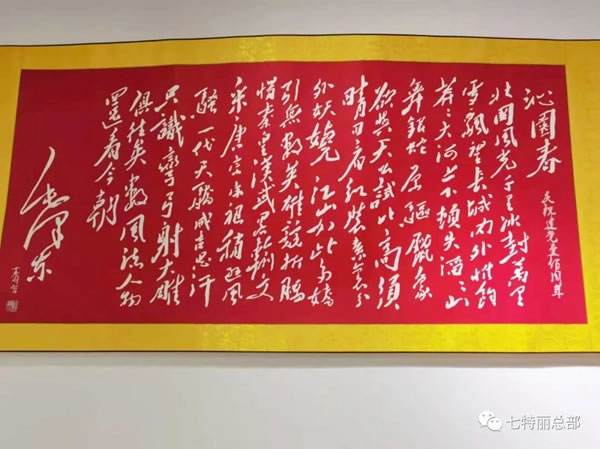 沁園春
庆祝建党壹佰周年
北國風光千里冰封萬里
雪飘望长城内外惟余
莽莽大河上下顿失滔滔山
舞银蛇原驱腊象
欲与天公试比高须
晴日看红装素裹分
外妖娆江山如此多娇
引无数英雄競折腰
惜秦皇漢武略输文
采唐宗宋祖稍逊风
骚一代天骄成吉思汗
只識弯弓射大雕
俱往矣數风流人物
還看今朝
毛泽东
七特丽总部